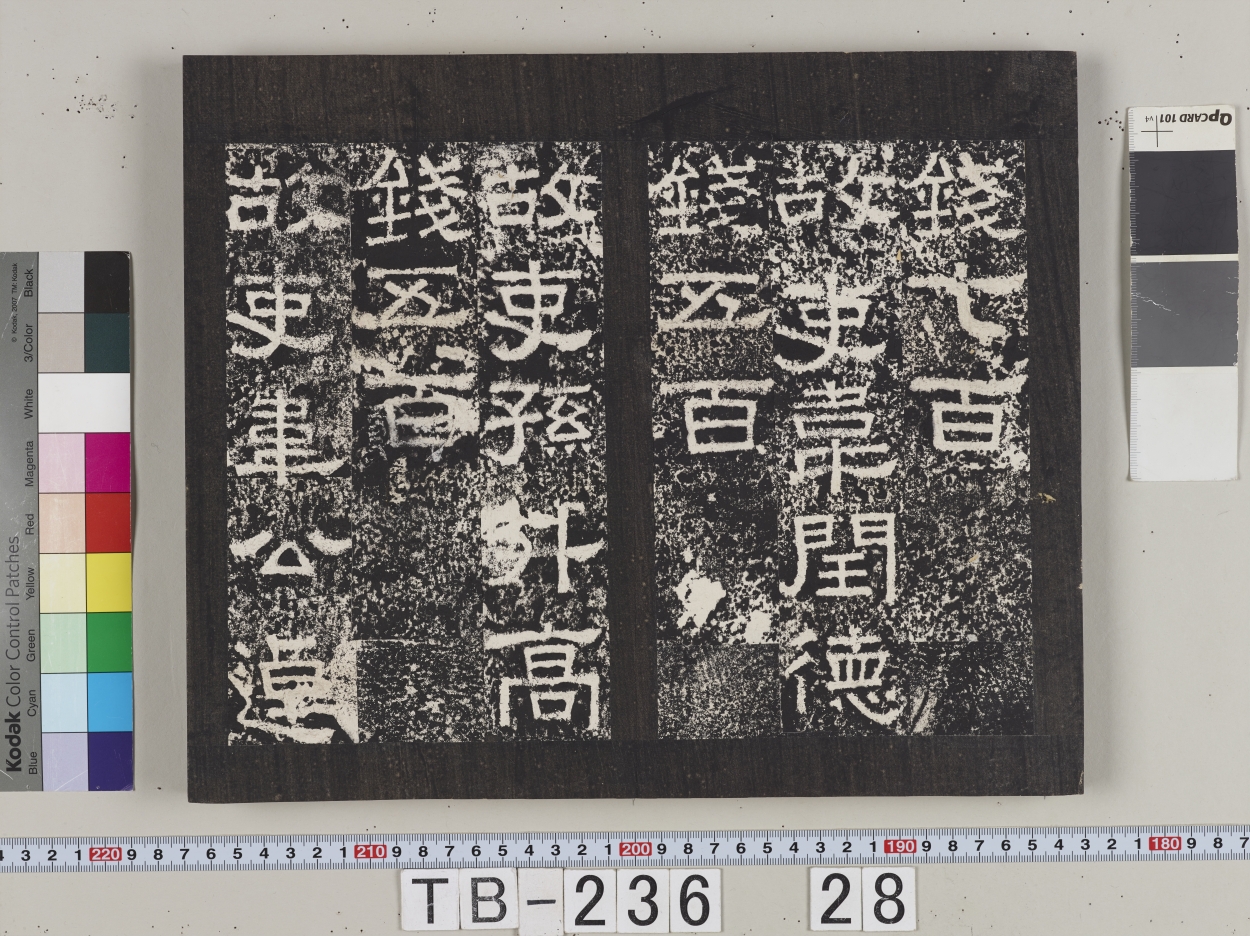 錢七百
故吏韋閏德
錢五百
故吏孫升高
錢五百
故吏韋公逴
QPCARD 101 v4
Kodak Color Control Patches
© Kodak, 2007 TM: Kodak
Blue Cyan Green Yellow Red Magenta White 3/Color Black
4 3 2 1 220 9 8 7 6 5 4 3 2 1 210 9 8 7 6 5 4 3 2 1 200 9 8 7 6 5 4 3 2 1 190 9 8 7 6 5 4 3 2 1 180 9 8 7
TB-236 28